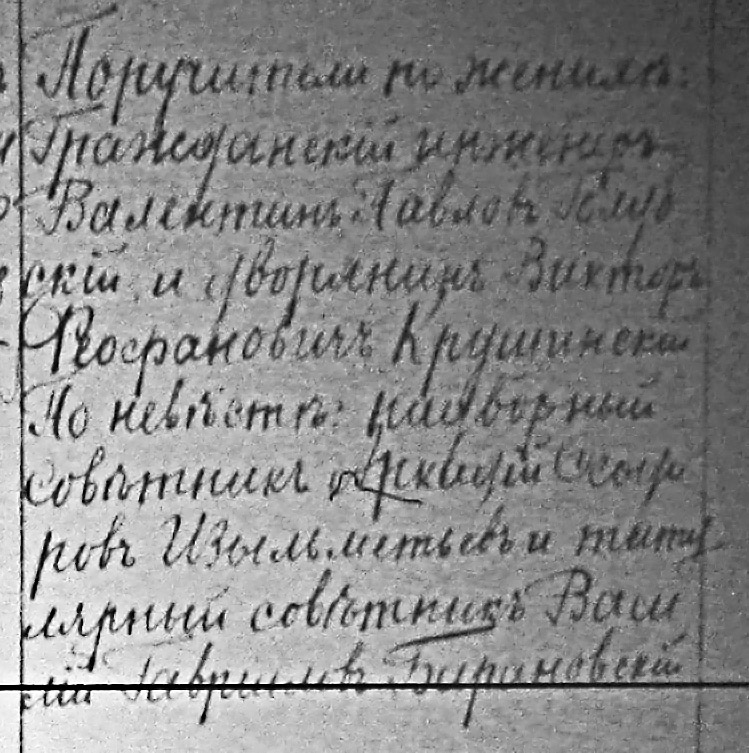 Поручители по женихѣ:
Гражданскій инженеръ
Валентинъ Павловъ
скій и дворянинъ Викторъ
Ѳеофановичъ Крушинскій
По невѣстѣ: надворный
совѣтникъ Аркадій Ѳеодо
ровъ Изыльметьевъ и титу
лярный совѣтникъ Васи
лій Гавриловъ Барановскій